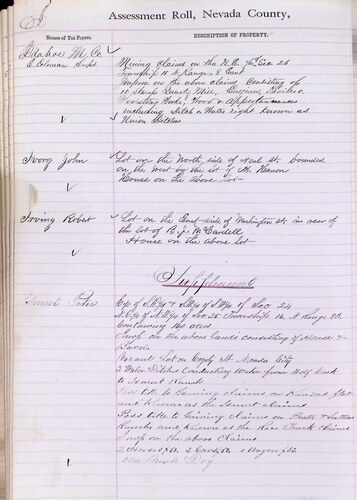 Assessment Roll, Nevada County,
Names of Tax Payers.
DESCRIPTION OF PROPERTY.
Idahoe M. Co
E. Coleman Supt.
Mining Claims on the N.E. ¼ Sec 26
Township 16 N Range 8 East
Improv on the above claims Consisting of
18 Stamp Quartz Mill, Engines, Boilers,
Hoisting Works, Wood & Appurtenances
including Ditch & Water right known as
Union Ditches
Ivory John
Lot on the North side of Neal St. bounded
on the West by the lot of
House on the above lot
Irving Robet
Lot on the East side of Washington St. in rear of
the lot of B. J. McCardell
House on the above lot
Supplement
Peter
E½ of S.E¼ & S.E¼ of S.W¼ of Sec 24
N.E¼ of N.W¼ of Sec 25 Township 16 N Range 8 E
Containing 160 acres
Imp on the above lands consisting of House &
Barn.
Vacant Lot on Coyote St. Nevada City
2 Water Ditches Conducting Water from
to Ranch
Poss title to Mining claims on Kansas flat
and Known as the claims
Poss title to Mining Claims on &
Ranches and Known as the Race Track claims
Imp on the above Claims
2 Horses 2 Cows 1 Wagon